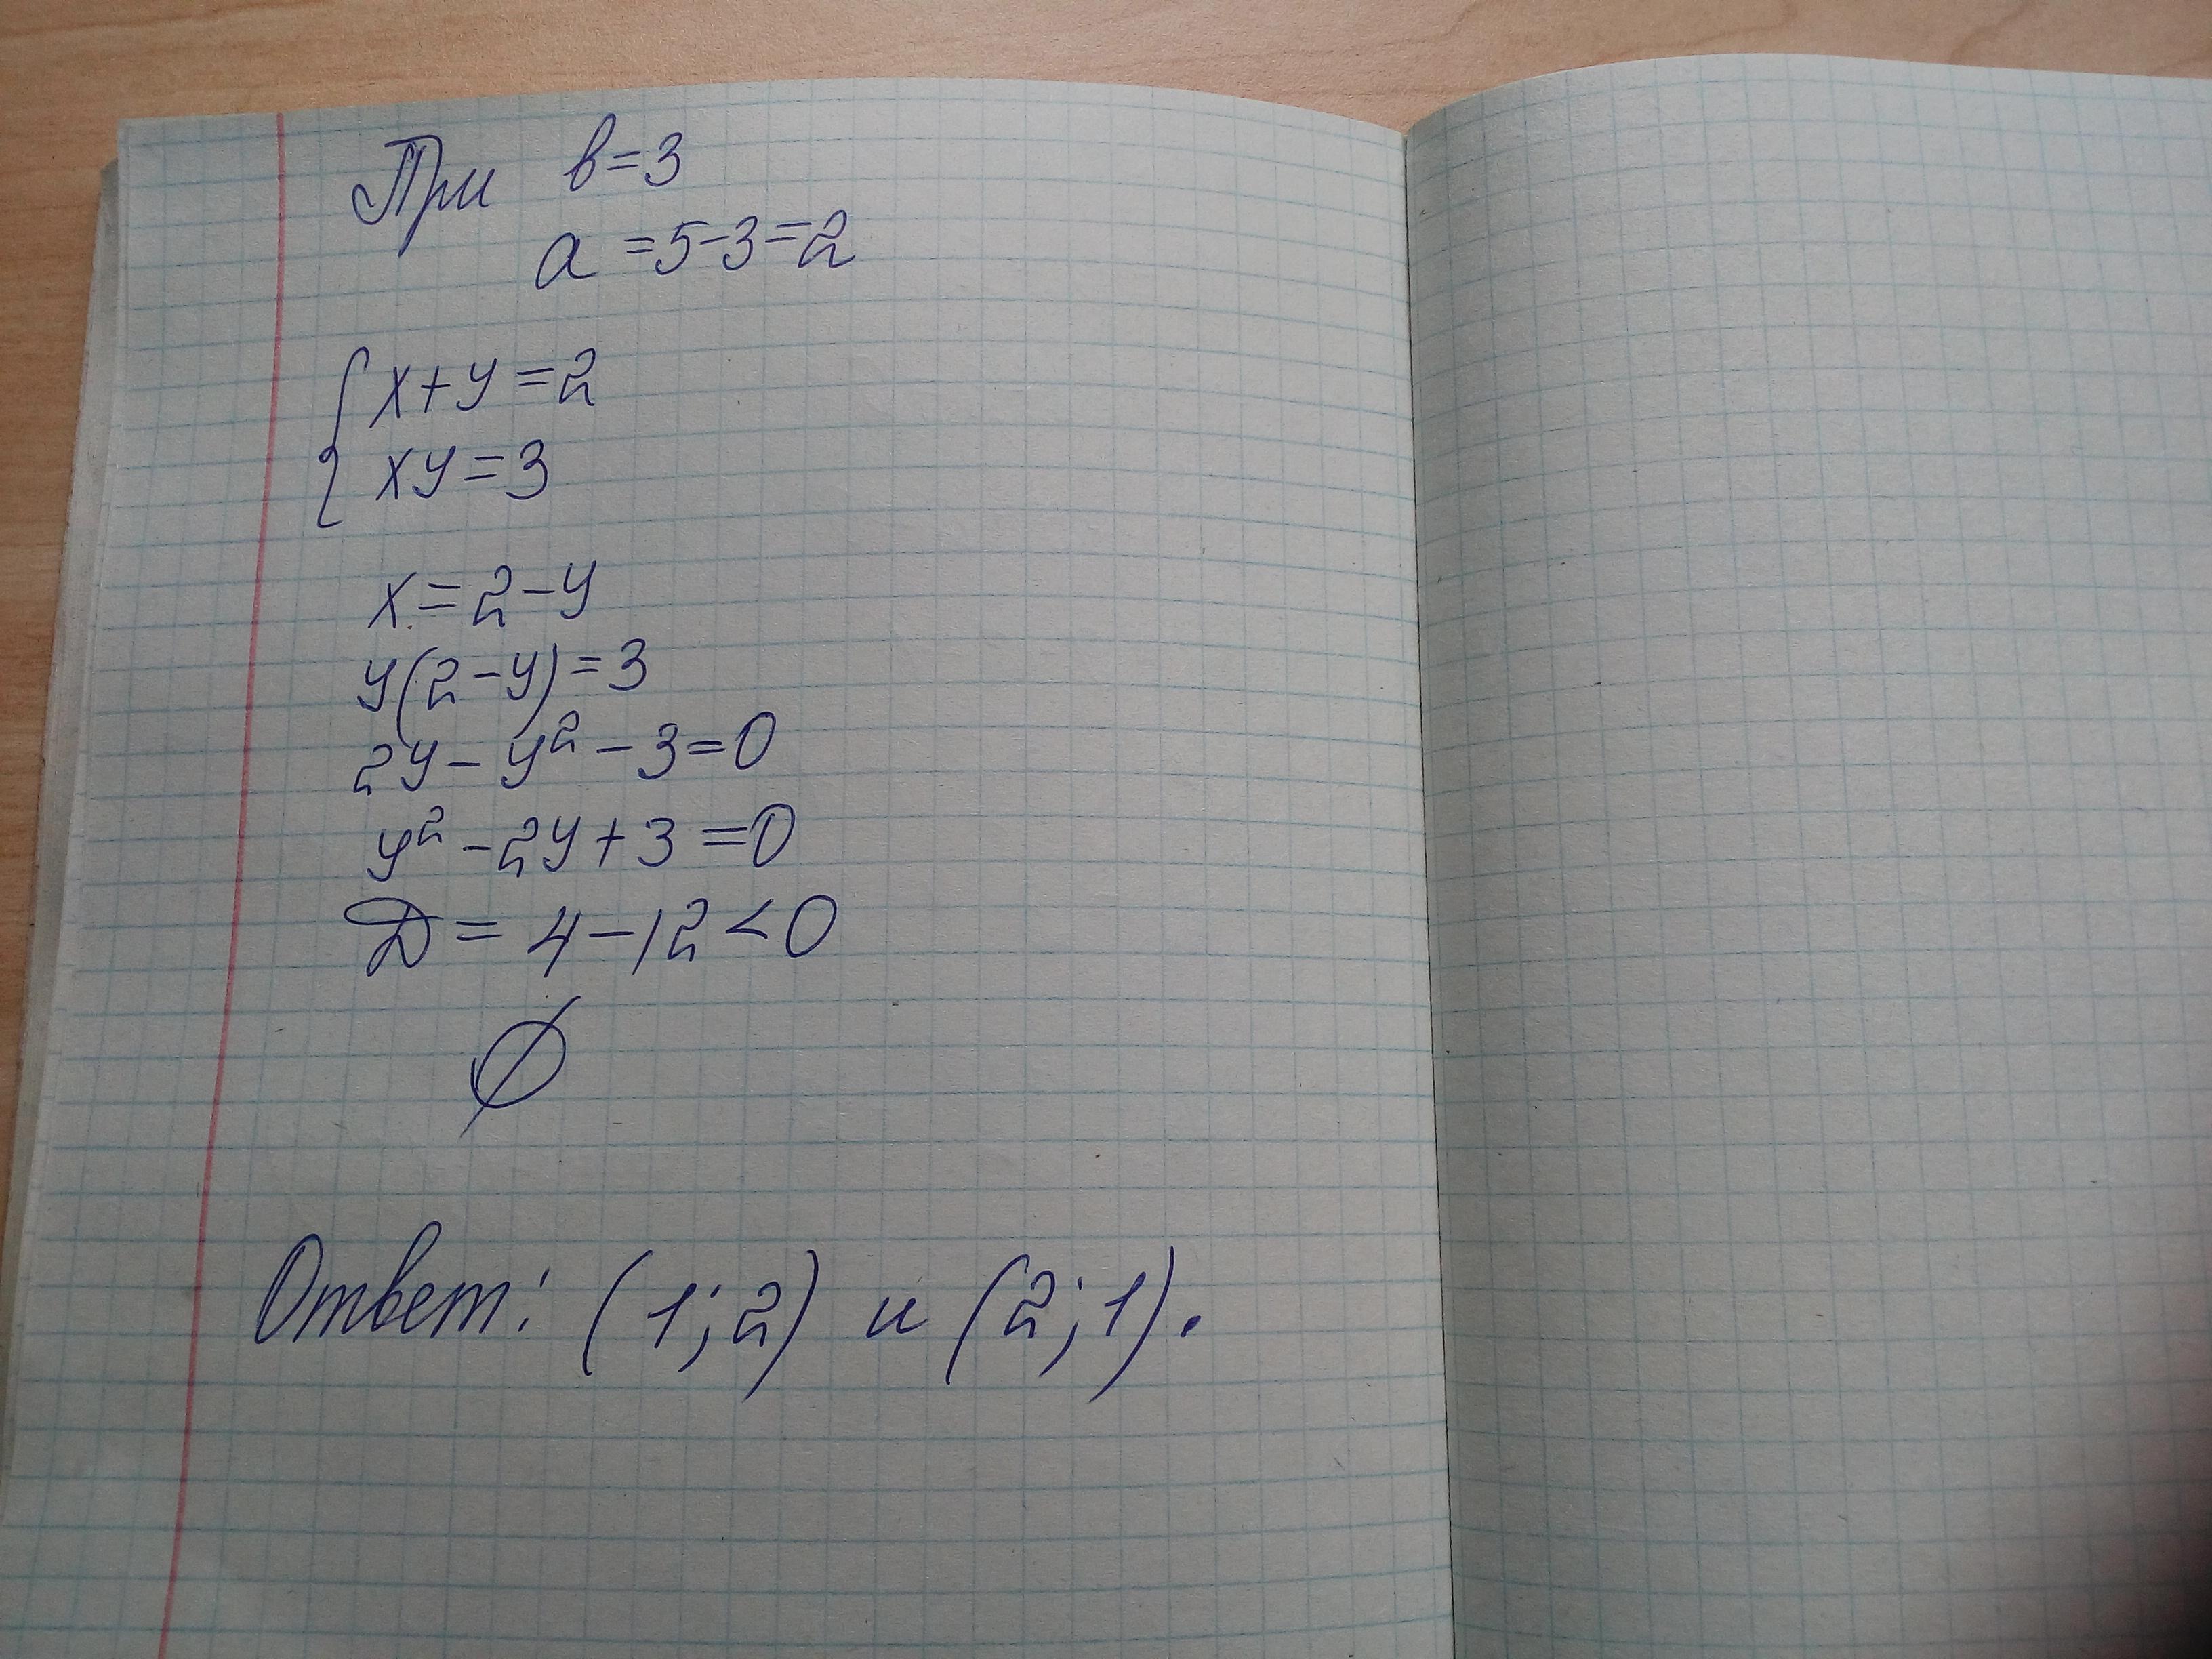 При в=3
а =5-3=2
{ x+y=2
xy=3
x=2-y
y(2-y)=3
2y-y²-3=0
y²-2y+3=0
Д= 4-12<0
∅
Ответ: (1;2) и (2;1).